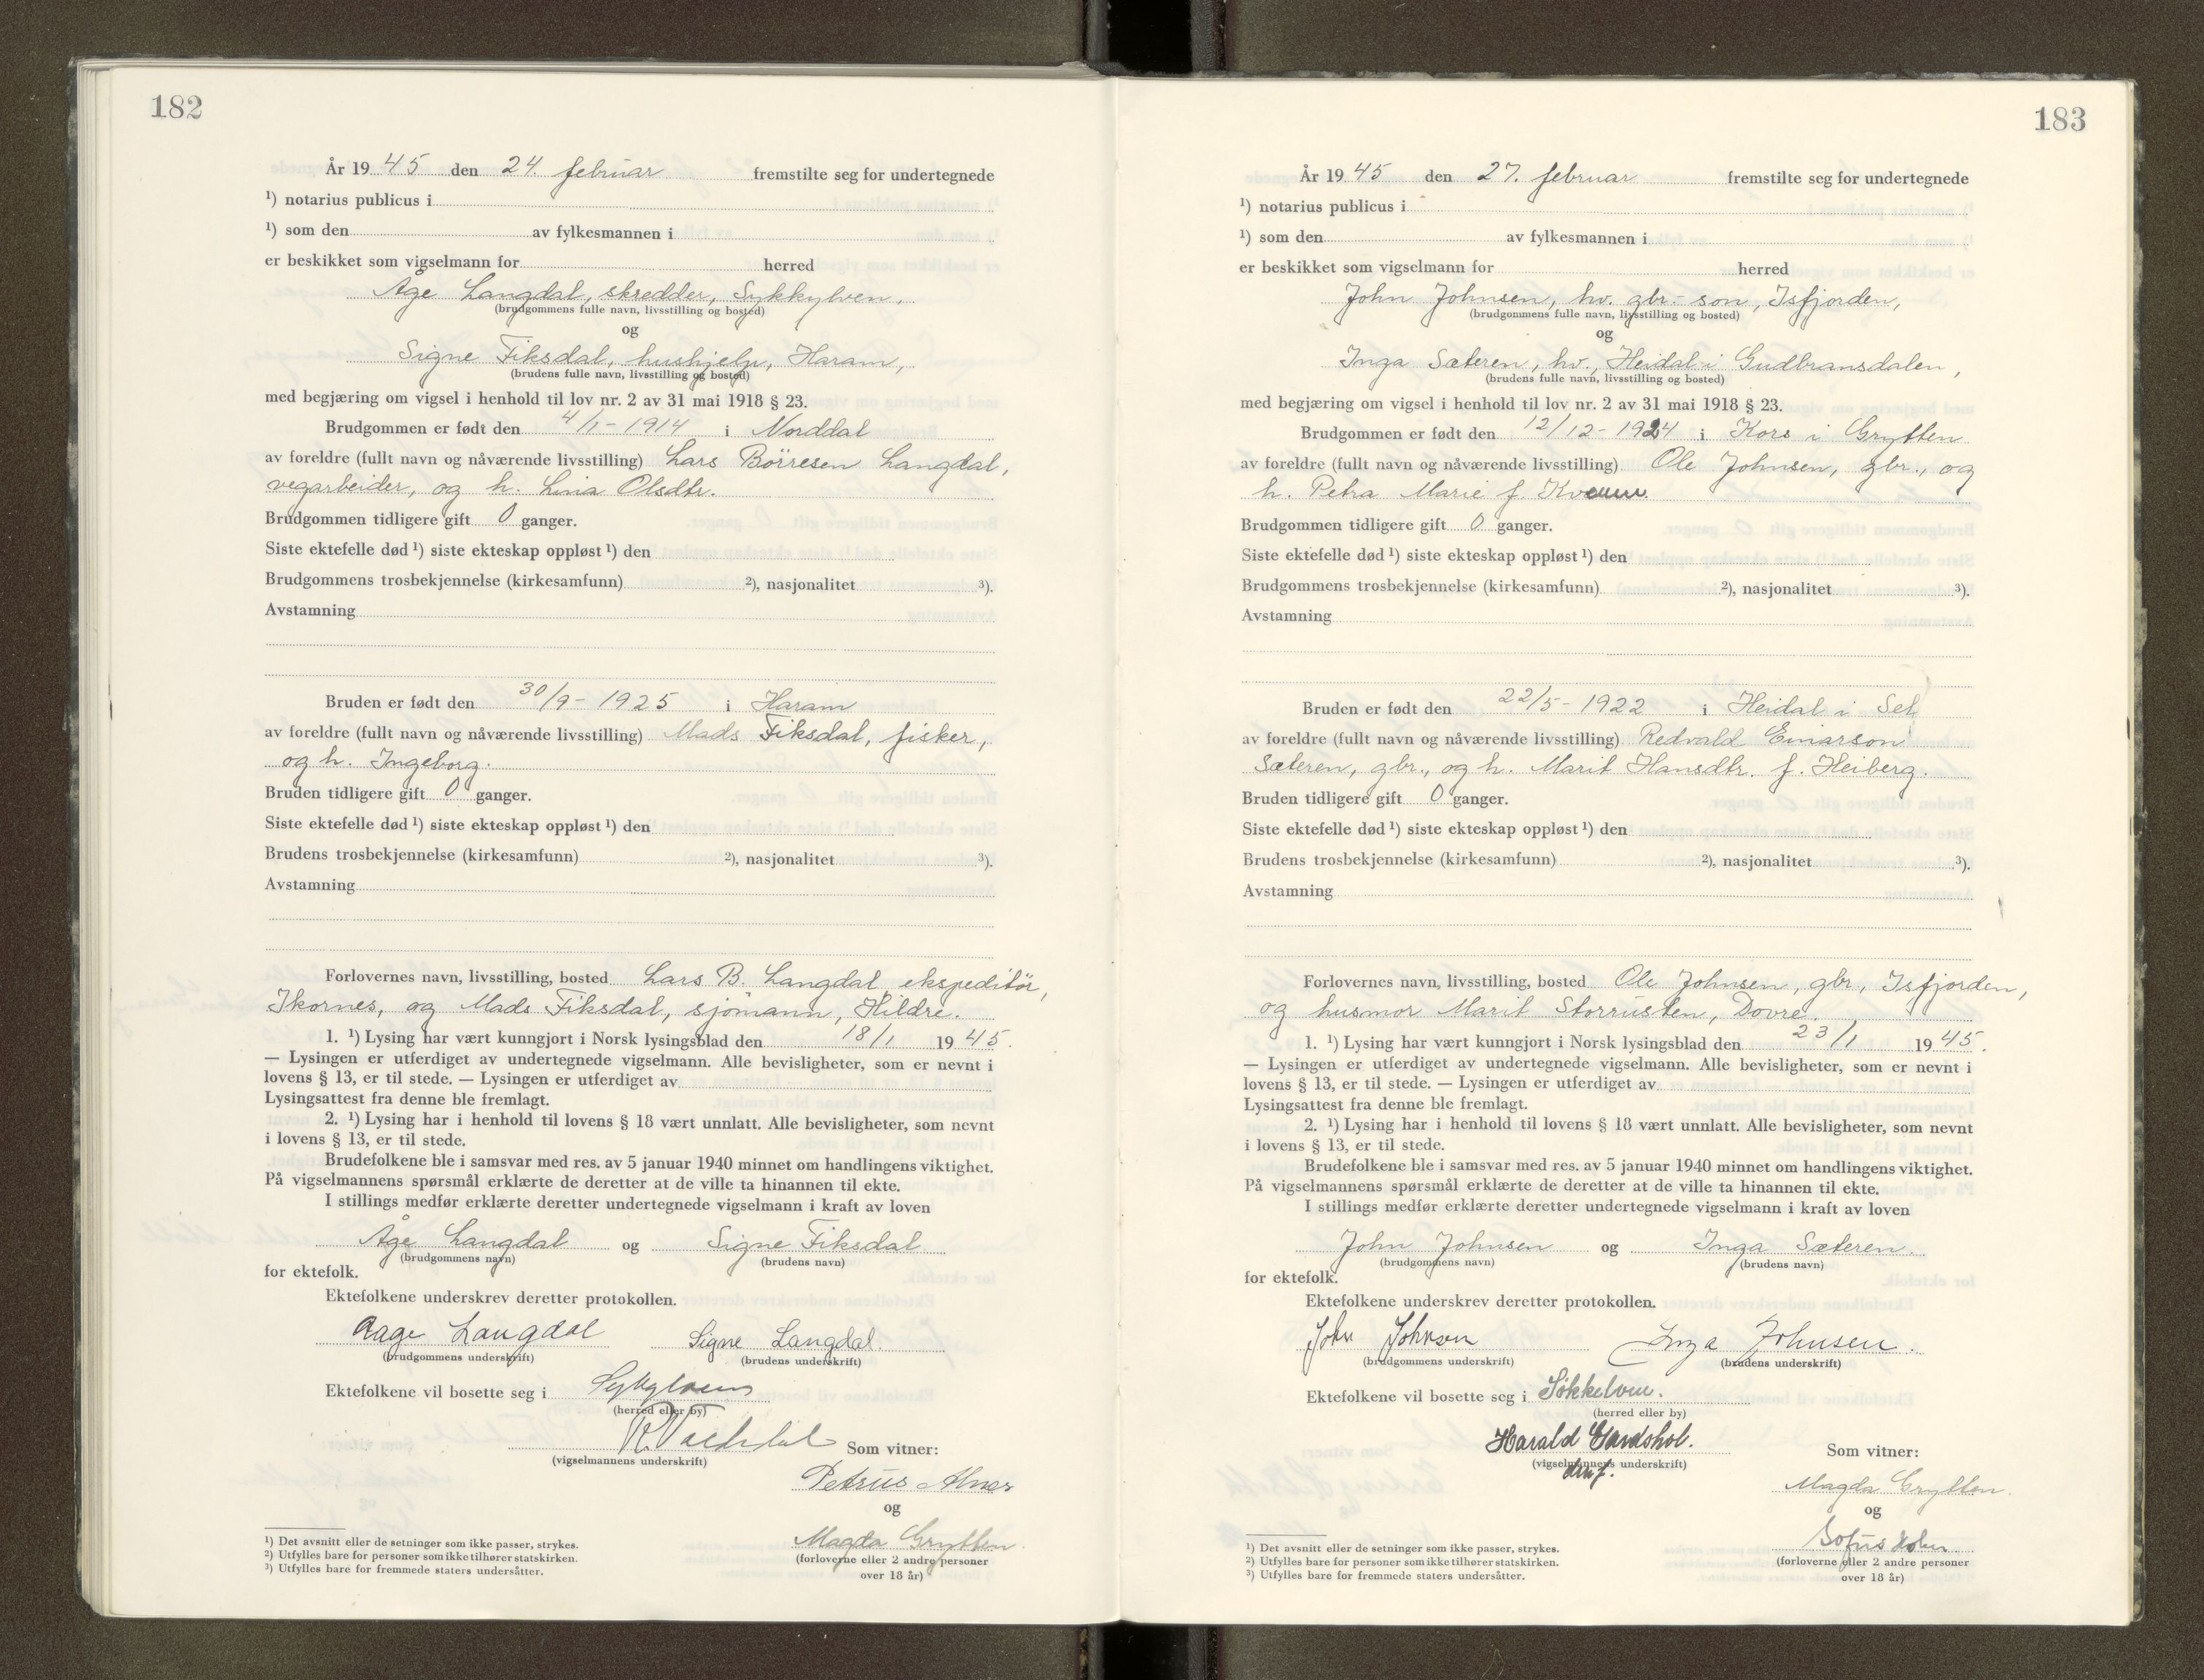 182
År 1945 den 24. februar fremstilte seg for undertegnede
1) notarius publicus i
1) som den av fylkesmannen i
er beskikket som vigselmann for herred
Åge Langdal, skredder, Sykkylven,
(brudgommens fulle navn, livsstilling og bosted)
og
Signe Fiksdal, hushjelp, Haram,
(brudens fulle navn, livsstilling og bosted)
med begjæring om vigsel i henhold til lov nr. 2 av 31 mai 1918 § 23.
Brudgommen er født den 4/1-1914 i Norddal
av foreldre (fullt navn og nåværende livsstilling) Lars Börresen Langdal,
vegarbeider, og h. Lina Olsdtr.
Brudgommen tidligere gift 0 ganger.
Siste ektefelle død 1) siste ekteskap oppløst 1) den
Brudgommens trosbekjennelse (kirkesamfunn) 2), nasjonalitet 3).
Avstamning
Bruden er født den 30/9-1925 i Haram
av foreldre (fullt navn og nåværende livsstilling) Mads Fiksdal, fisker,
og h. Ingeborg.
Bruden tidligere gift 0 ganger.
Siste ektefelle død 1) siste ekteskap oppløst 1) den
Brudens trosbekjennelse (kirkesamfunn) 2), nasjonalitet 3).
Avstamning
Forlovernes navn, livsstilling, bosted Lars B. Langdal, ekspeditör,
Ikornes, og Mads Fiksdal, sjömann, Hildre.
1. 1) Lysing har vært kunngjort i Norsk lysingsblad den 18/1 1945.
— Lysingen er utferdiget av undertegnede vigselmann. Alle bevisligheter, som er nevnt i
lovens § 13, er til stede. — Lysingen er utferdiget av
Lysingsattest fra denne ble fremlagt.
2. 1) Lysing har i henhold til lovens § 18 vært unnlatt. Alle bevisligheter, som nevnt
i lovens § 13, er til stede.
Brudefolkene ble i samsvar med res. av 5 januar 1940 minnet om handlingens viktighet.
På vigselmannens spørsmål erklærte de deretter at de ville ta hinannen til ekte.
I stillings medfør erklærte deretter undertegnede vigselmann i kraft av loven
Åge Langdal og Signe Fiksdal
(brudgommens navn) (brudens navn)
for ektefolk.
Ektefolkene underskrev deretter protokollen.
Aage Langdal Signe Langdal.
(brudgommens underskrift) (brudens underskrift)
Ektefolkene vil bosette seg i
(herred eller by)
Som vitner:
(vigselmannens underskrift)
Petrus
og
Magda Grytten
(forloverne eller 2 andre personer
over 18 år)
1) Det avsnitt eller de setninger som ikke passer, strykes.
2) Utfylles bare for personer som ikke tilhører statskirken.
3) Utfylles bare for fremmede staters undersåtter.
183
År 1945 den 27. februar fremstilte seg for undertegnede
1) notarius publicus i
1) som den av fylkesmannen i
er beskikket som vigselmann for herred
John Johnsen, hv. gbr.-son, Isfjorden,
(brudgommens fulle navn, livsstilling og bosted)
og
Inga Sæteren, hv., Heidal i Gudbransdalen,
(brudens fulle navn, livsstilling og bosted)
med begjæring om vigsel i henhold til lov nr. 2 av 31 mai 1918 § 23.
Brudgommen er født den 12/12-1924 i Kors i Grytten
av foreldre (fullt navn og nåværende livsstilling) Ole Johnsen, gbr., og
h. Petra Marie f. Kvam.
Brudgommen tidligere gift 0 ganger.
Siste ektefelle død 1) siste ekteskap oppløst 1) den
Brudgommens trosbekjennelse (kirkesamfunn) 2), nasjonalitet 3).
Avstamning
Bruden er født den 22/5-1922 i Heidal i Sel
av foreldre (fullt navn og nåværende livsstilling) Redvald Einarson
Sæteren, gbr., og h. Marit Hansdtr. f. Heiberg.
Bruden tidligere gift 0 ganger.
Siste ektefelle død 1) siste ekteskap oppløst 1) den
Brudens trosbekjennelse (kirkesamfunn) 2), nasjonalitet 3).
Avstamning
Forlovernes navn, livsstilling, bosted Ole Johnsen, gbr., Isfjorden,
og husmor Marit Storrusten, Dovre.
1. 1) Lysing har vært kunngjort i Norsk lysingsblad den 23/1 1945.
— Lysingen er utferdiget av undertegnede vigselmann. Alle bevisligheter, som er nevnt i
lovens § 13, er til stede. — Lysingen er utferdiget av
Lysingsattest fra denne ble fremlagt.
2. 1) Lysing har i henhold til lovens § 18 vært unnlatt. Alle bevisligheter, som nevnt
i lovens § 13, er til stede.
Brudefolkene ble i samsvar med res. av 5 januar 1940 minnet om handlingens viktighet.
På vigselmannens spørsmål erklærte de deretter at de ville ta hinannen til ekte.
I stillings medfør erklærte deretter undertegnede vigselmann i kraft av loven
John Johnsen og Inga Sæteren.
(brudgommens navn) (brudens navn)
for ektefolk.
Ektefolkene underskrev deretter protokollen.
John Johnsen Inga Johnsen.
(brudgommens underskrift) (brudens underskrift)
Ektefolkene vil bosette seg i Søkkelven.
(herred eller by)
Harald
Som vitner:
(vigselmannens underskrift)
Magda Grytten.
og
Sofus
(forloverne eller 2 andre personer
over 18 år)
1) Det avsnitt eller de setninger som ikke passer, strykes.
2) Utfylles bare for personer som ikke tilhører statskirken.
3) Utfylles bare for fremmede staters undersåtter.